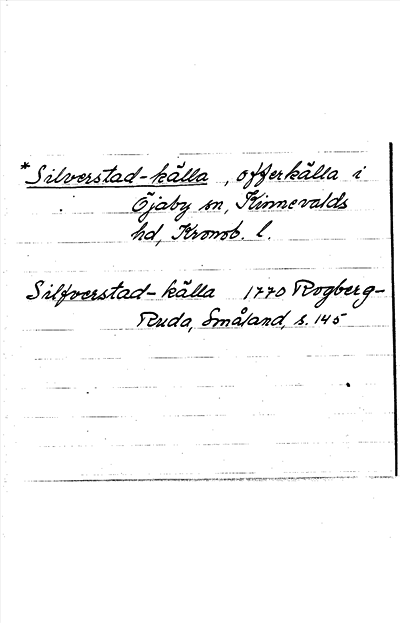 *Silverstad-källa, offerkälla i
Öjaby sn, Kinnevalds
hd, Kronob. l.
Silfverstad-källa 1770 Rogberg-
Ruda, Småland, s. 145